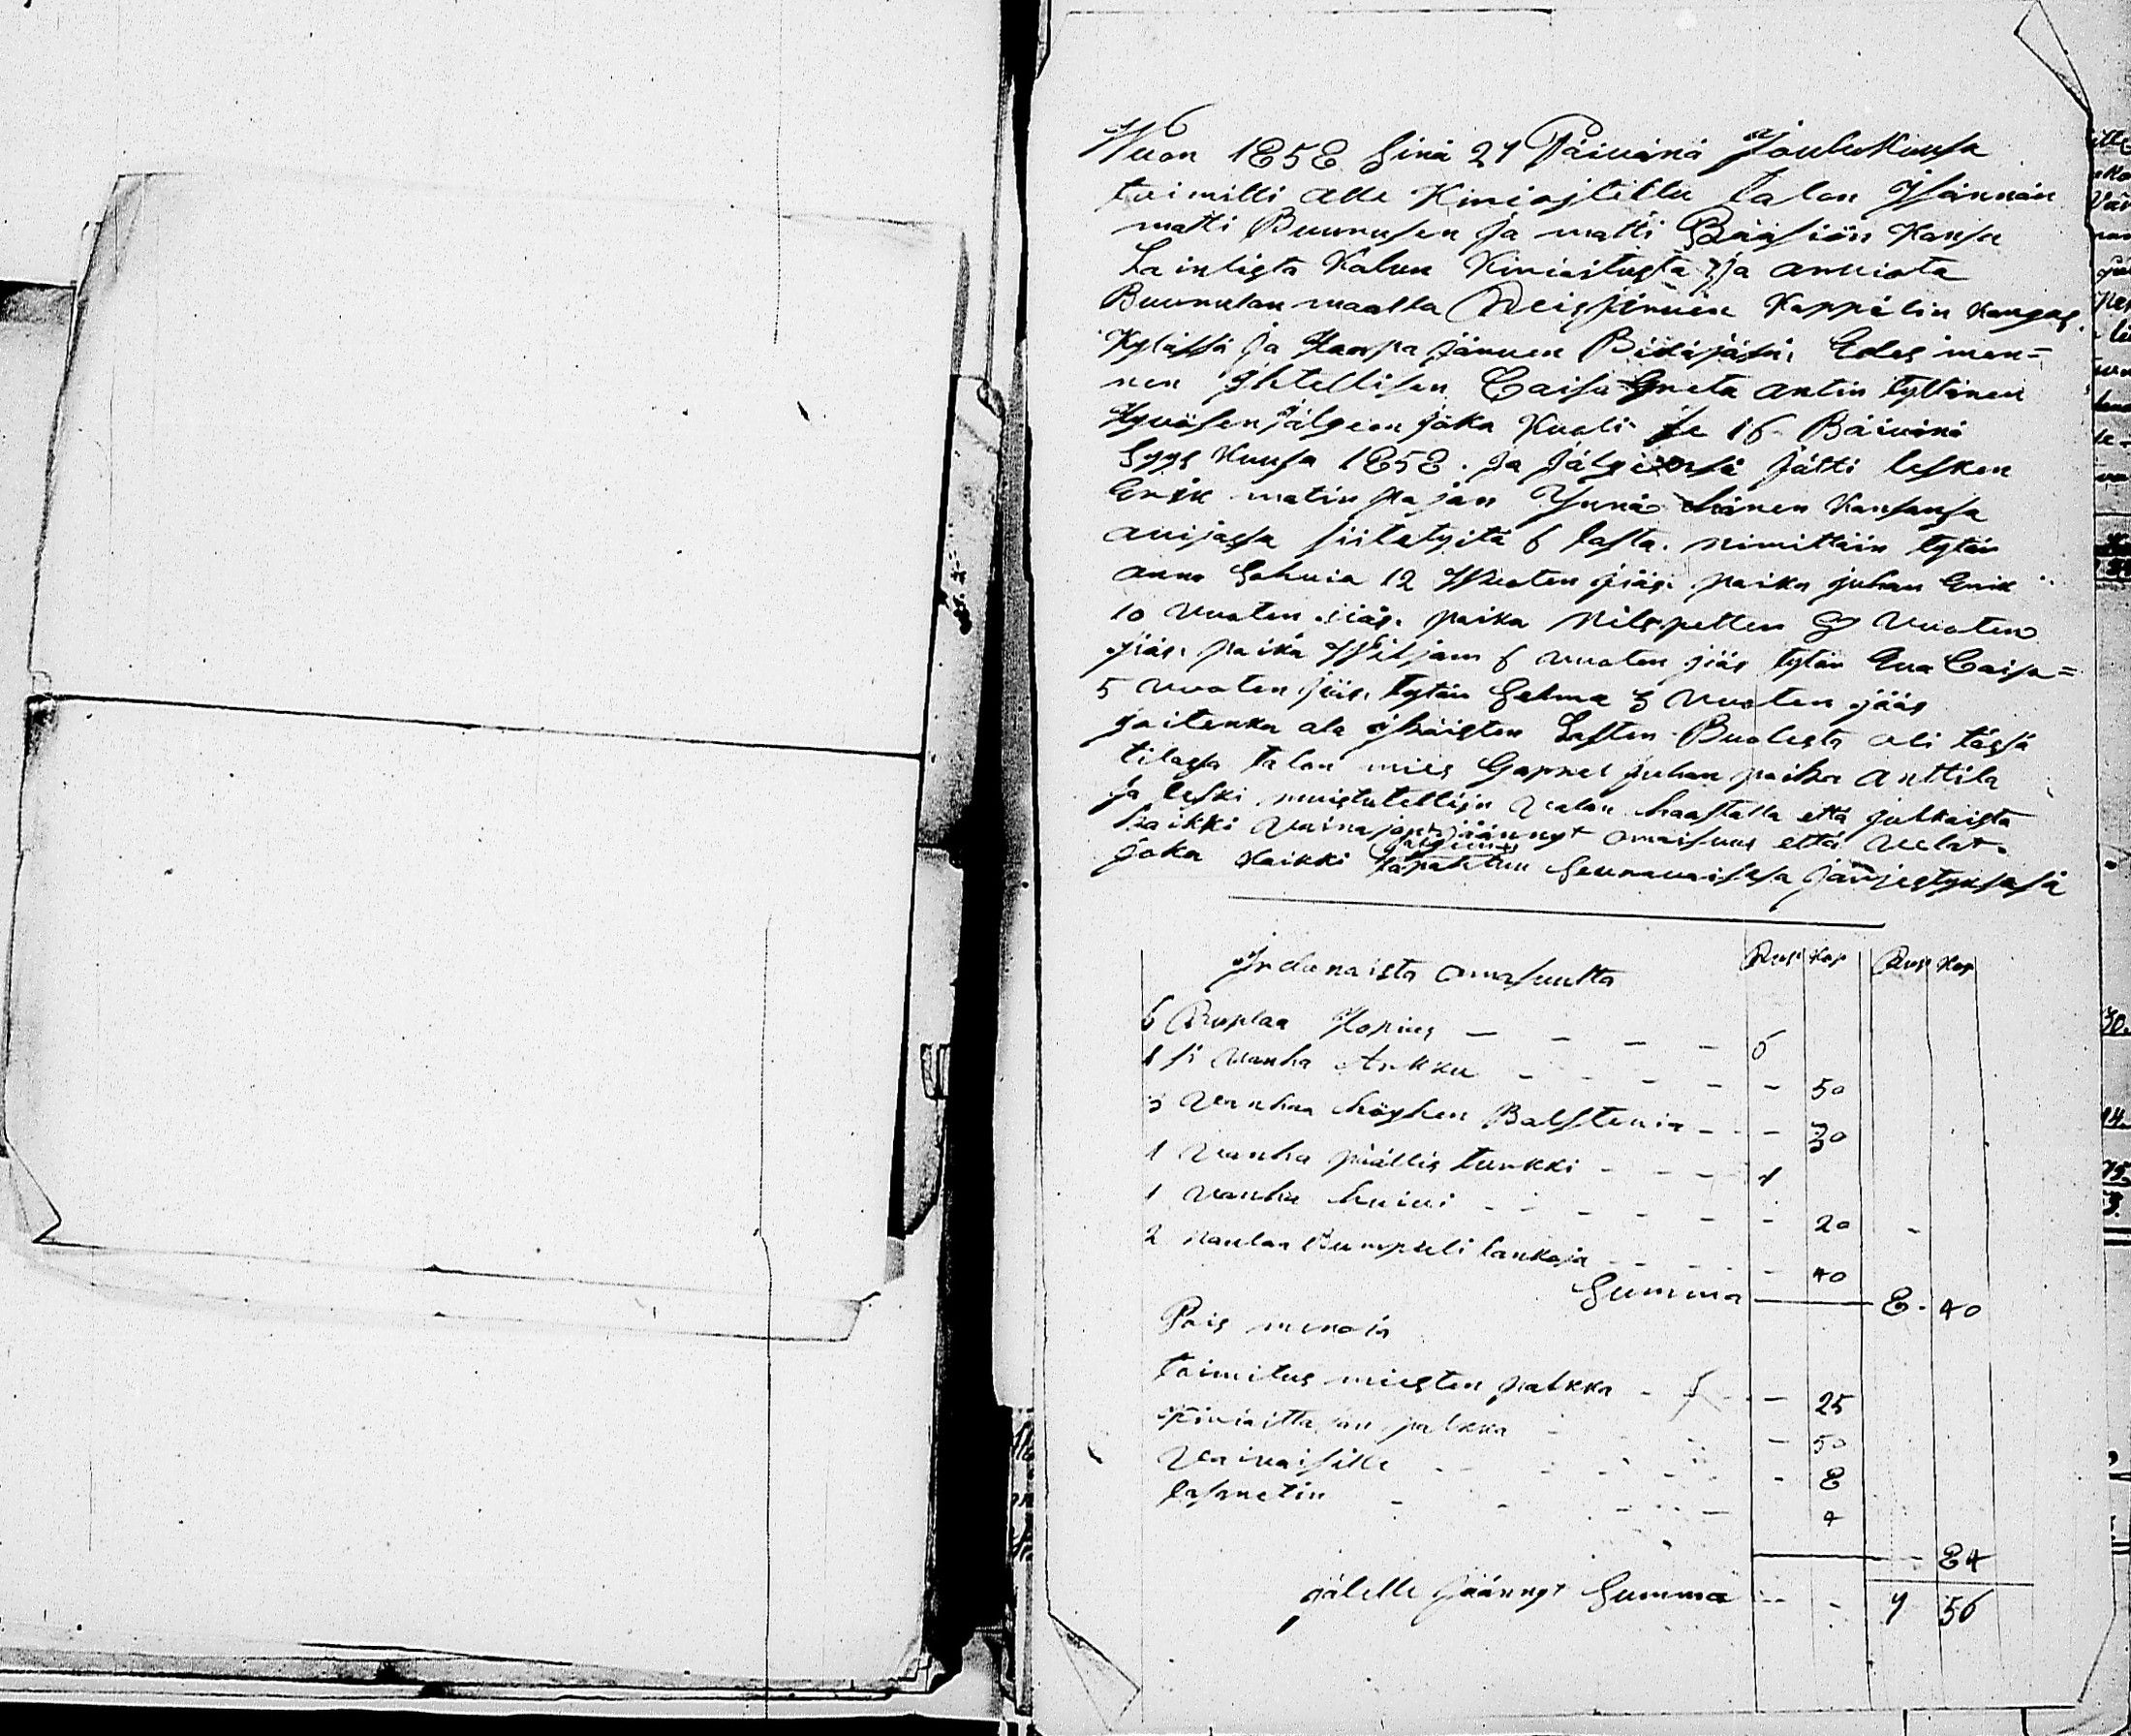 6
Wuon 1858 Sinä 27 Päivänä Joulukuusa
toimitti alle Kiriojtettu Talon Isännän
matti Buurusen Ja matti Bääsiön Kansa
Lainlista Kalun Kirioitusta Ja arviota
Buurulan maalla Reisjärven Kappelin Kangas
Kylässä Ja Haapajärven Bitäjäsä, Edes men=
nen Ihtellisen Caisa Greta antin tyttären
Hyvösen jälgeen Joka Kuoli se 16 Bäivänä
Syys Kuusa 1858. Ja Jälgeensä Jätti lesken
Erik matin pajan Ynnä hänen Kansansa
avijossa siitetyitä 6 lasta. nimittäin tytön
anna Sohvia 12 Wuoten jiäs. paika juhan Erik
10 Vuoten jiäs. paika Nils petter 8 Vuoten
jiäs. paika Wiljam 6 vuoten jiäs tytön Eva Caisa=
5 vuoten jiäs. tytön Selma 3 vuoten jääs
joitenka ala ikäisten Lasten Buolesta oli tässä
tilassa talon mies Gapriel juhan paika Anttila
Ja leski muistutettiin Valan haastalla että julkaista
kaikki Vainajan jäännyt omaisuus että Velat.
jälgeens
joka Kaikki tapahtuu Seuraavaisesa Järjestyksesä
Irdanaista omasuutta Rup Kop Rup Kop
6 Ruplaa Hopius — — — — 6
1 si Vanha Arkku - - - - - 50
3 Vanhaa höyhen Balsteria - - - 30
1 Vanha päällis turkki - - - 1
1 Vanha huivi - - - - - - 20
2 Naulaa Bumpuli lankoja - - - 40
Summa — 8. 40
Pois menoja
toimitus miesten palkka - - - 25
Kirioittajan palkka - - - 50
Vaivaisille - - - - - 8
lasaretin - - - - 4
- 84
jälelle Jäännyt Summa - - 7 56